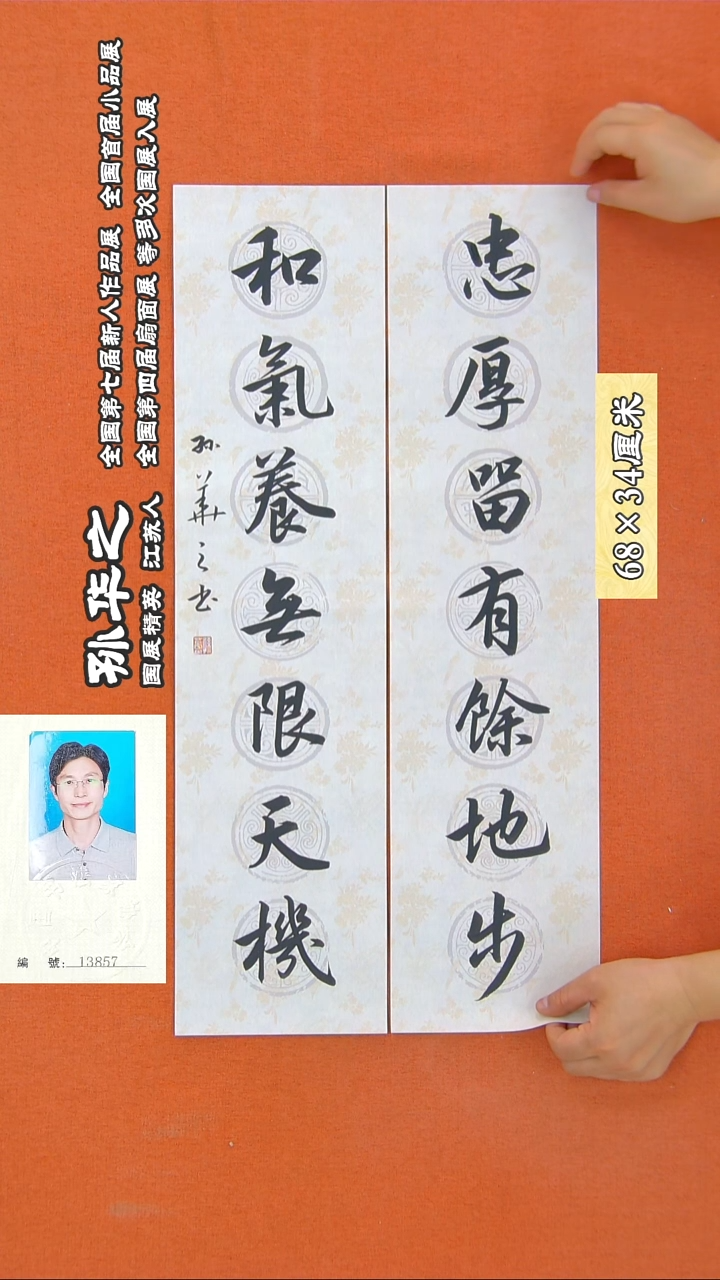 忠厚留有餘地步
和氣養無限天機
孙华之书
孙华之
国展精英 江苏人
全国第七届新人作品展 全国首届小品展
全国第四届扇面展 等多次国展入展
68×34厘米
編 號: 13857